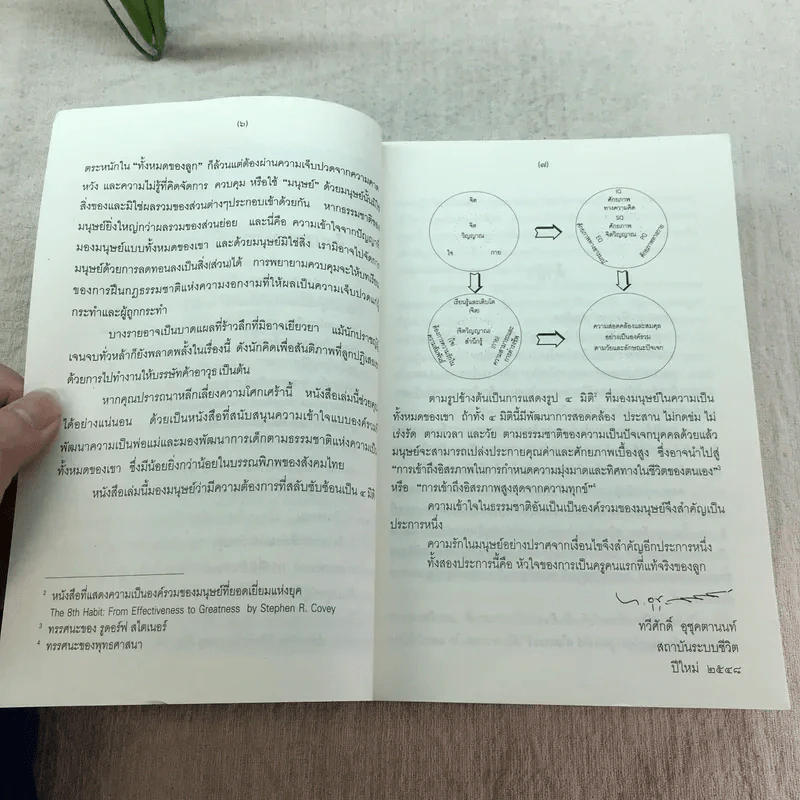 (๖)
ตระหนักใน “ทั้งหมดของลูก” ก็ล้วนแต่ต้องผ่านความเจ็บปวดจากความคาด
หวัง และความไม่รู้ที่คิดจัดการ ควบคุม หรือใช้ “มนุษย์” ด้วยมนุษย์นั้นมิใช่
สิ่งของและมิใช่ผลรวมของส่วนต่างๆประกอบเข้าด้วยกัน หากธรรมชาติของ
มนุษย์ยิ่งใหญ่กว่าผลรวมของส่วนย่อย และนี่คือ ความเข้าใจจากปัญญาที่
มองมนุษย์แบบทั้งหมดของเขา และด้วยมนุษย์มิใช่สิ่ง เรามิอาจไปจัดการ
มนุษย์ด้วยการลดทอนลงเป็นสิ่ง(ส่วน)ได้ การพยายามควบคุมจะให้บทเรียน
ของการฝืนกฎธรรมชาติแห่งความงอกงามที่ให้ผลเป็นความเจ็บปวดแก่ผู้
กระทำและผู้ถูกกระทำ
บางรายอาจเป็นบาดแผลที่ร้าวลึกที่มิอาจเยียวยา แม้นักปราชญ์ผู้
เจนจบทั่วหล้าก็ยังพลาดพลั้งในเรื่องนี้ ดังนักคิดเพื่อสันติภาพที่ลูกปฏิเสธ
ด้วยการไปทำงานให้บรรษัทค้าอาวุธ เป็นต้น
หากคุณปรารถนาหลีกเลี่ยงความโศกเศร้านี้ หนังสือเล่มนี้ช่วยคุณ
ได้อย่างแน่นอน ด้วยเป็นหนังสือที่สนับสนุนความเข้าใจแบบองค์รวมใน
พัฒนาความเป็นพ่อแม่และมองพัฒนาการเด็กตามธรรมชาติแห่งความเป็น
ทั้งหมดของเขา ซึ่งมีน้อยยิ่งกว่าน้อยในบรรณพิภพของสังคมไทย
หนังสือเล่มนี้มองมนุษย์ว่ามีความต้องการที่สลับซับซ้อนเป็น ๔ มิติ
2 หนังสือที่แสดงความเป็นองค์รวมของมนุษย์ที่ยอดเยี่ยมแห่งยุค
The 8th Habit: From Effectiveness to Greatness by Stephen R. Covey
3 ทรรศนะของ รูดอร์ฟ สไตเนอร์
4 ทรรศนะของพุทธศาสนา
(๗)
จิต
จิต
วิญญาณ
ใจ กาย
IQ
ศักยภาพ
ทางความคิด
SQ
ศักยภาพ
จิตวิญญาณ
EQ
ศักยภาพทางอารมณ์
PQ
ศักยภาพทางกาย
เรียนรู้และเติบโต
(จิต)
(จิตวิญญาณ)
สำนึกรู้
(ใจ)
(กาย)
ความสอดคล้องและสมดุล
อย่างเป็นองค์รวม
ตามวัยและลักษณะปัจเจก
ตามรูปข้างต้นเป็นการแสดงรูป ๔ มิติ2 ที่มองมนุษย์ในความเป็น
ทั้งหมดของเขา ถ้าทั้ง ๔ มิตินี้มีพัฒนาการสอดคล้อง ประสาน ไม่กดข่ม ไม่
เร่งรัด ตามเวลา และวัย ตามธรรมชาติของความเป็นปัจเจกบุคคลด้วยแล้ว
มนุษย์จะสามารถเปล่งประกายคุณค่าและศักยภาพเบื้องสูง ซึ่งอาจนำไปสู่
“การเข้าถึงอิสรภาพในการกำหนดความมุ่งมาดและทิศทางในชีวิตของตนเอง”3
หรือ “การเข้าถึงอิสรภาพสูงสุดจากความทุกข์”4
ความเข้าใจในธรรมชาติอันเป็นเป็นองค์รวมของมนุษย์จึงสำคัญเป็น
ประการหนึ่ง
ความรักในมนุษย์อย่างปราศจากเงื่อนไขจึงสำคัญอีกประการหนึ่ง
ทั้งสองประการนี้คือ หัวใจของการเป็นครูคนแรกที่แท้จริงของลูก
ทวีศักดิ์ อุชุคตานนท์
สถาบันระบบชีวิต
ปีใหม่ ๒๕๔๘